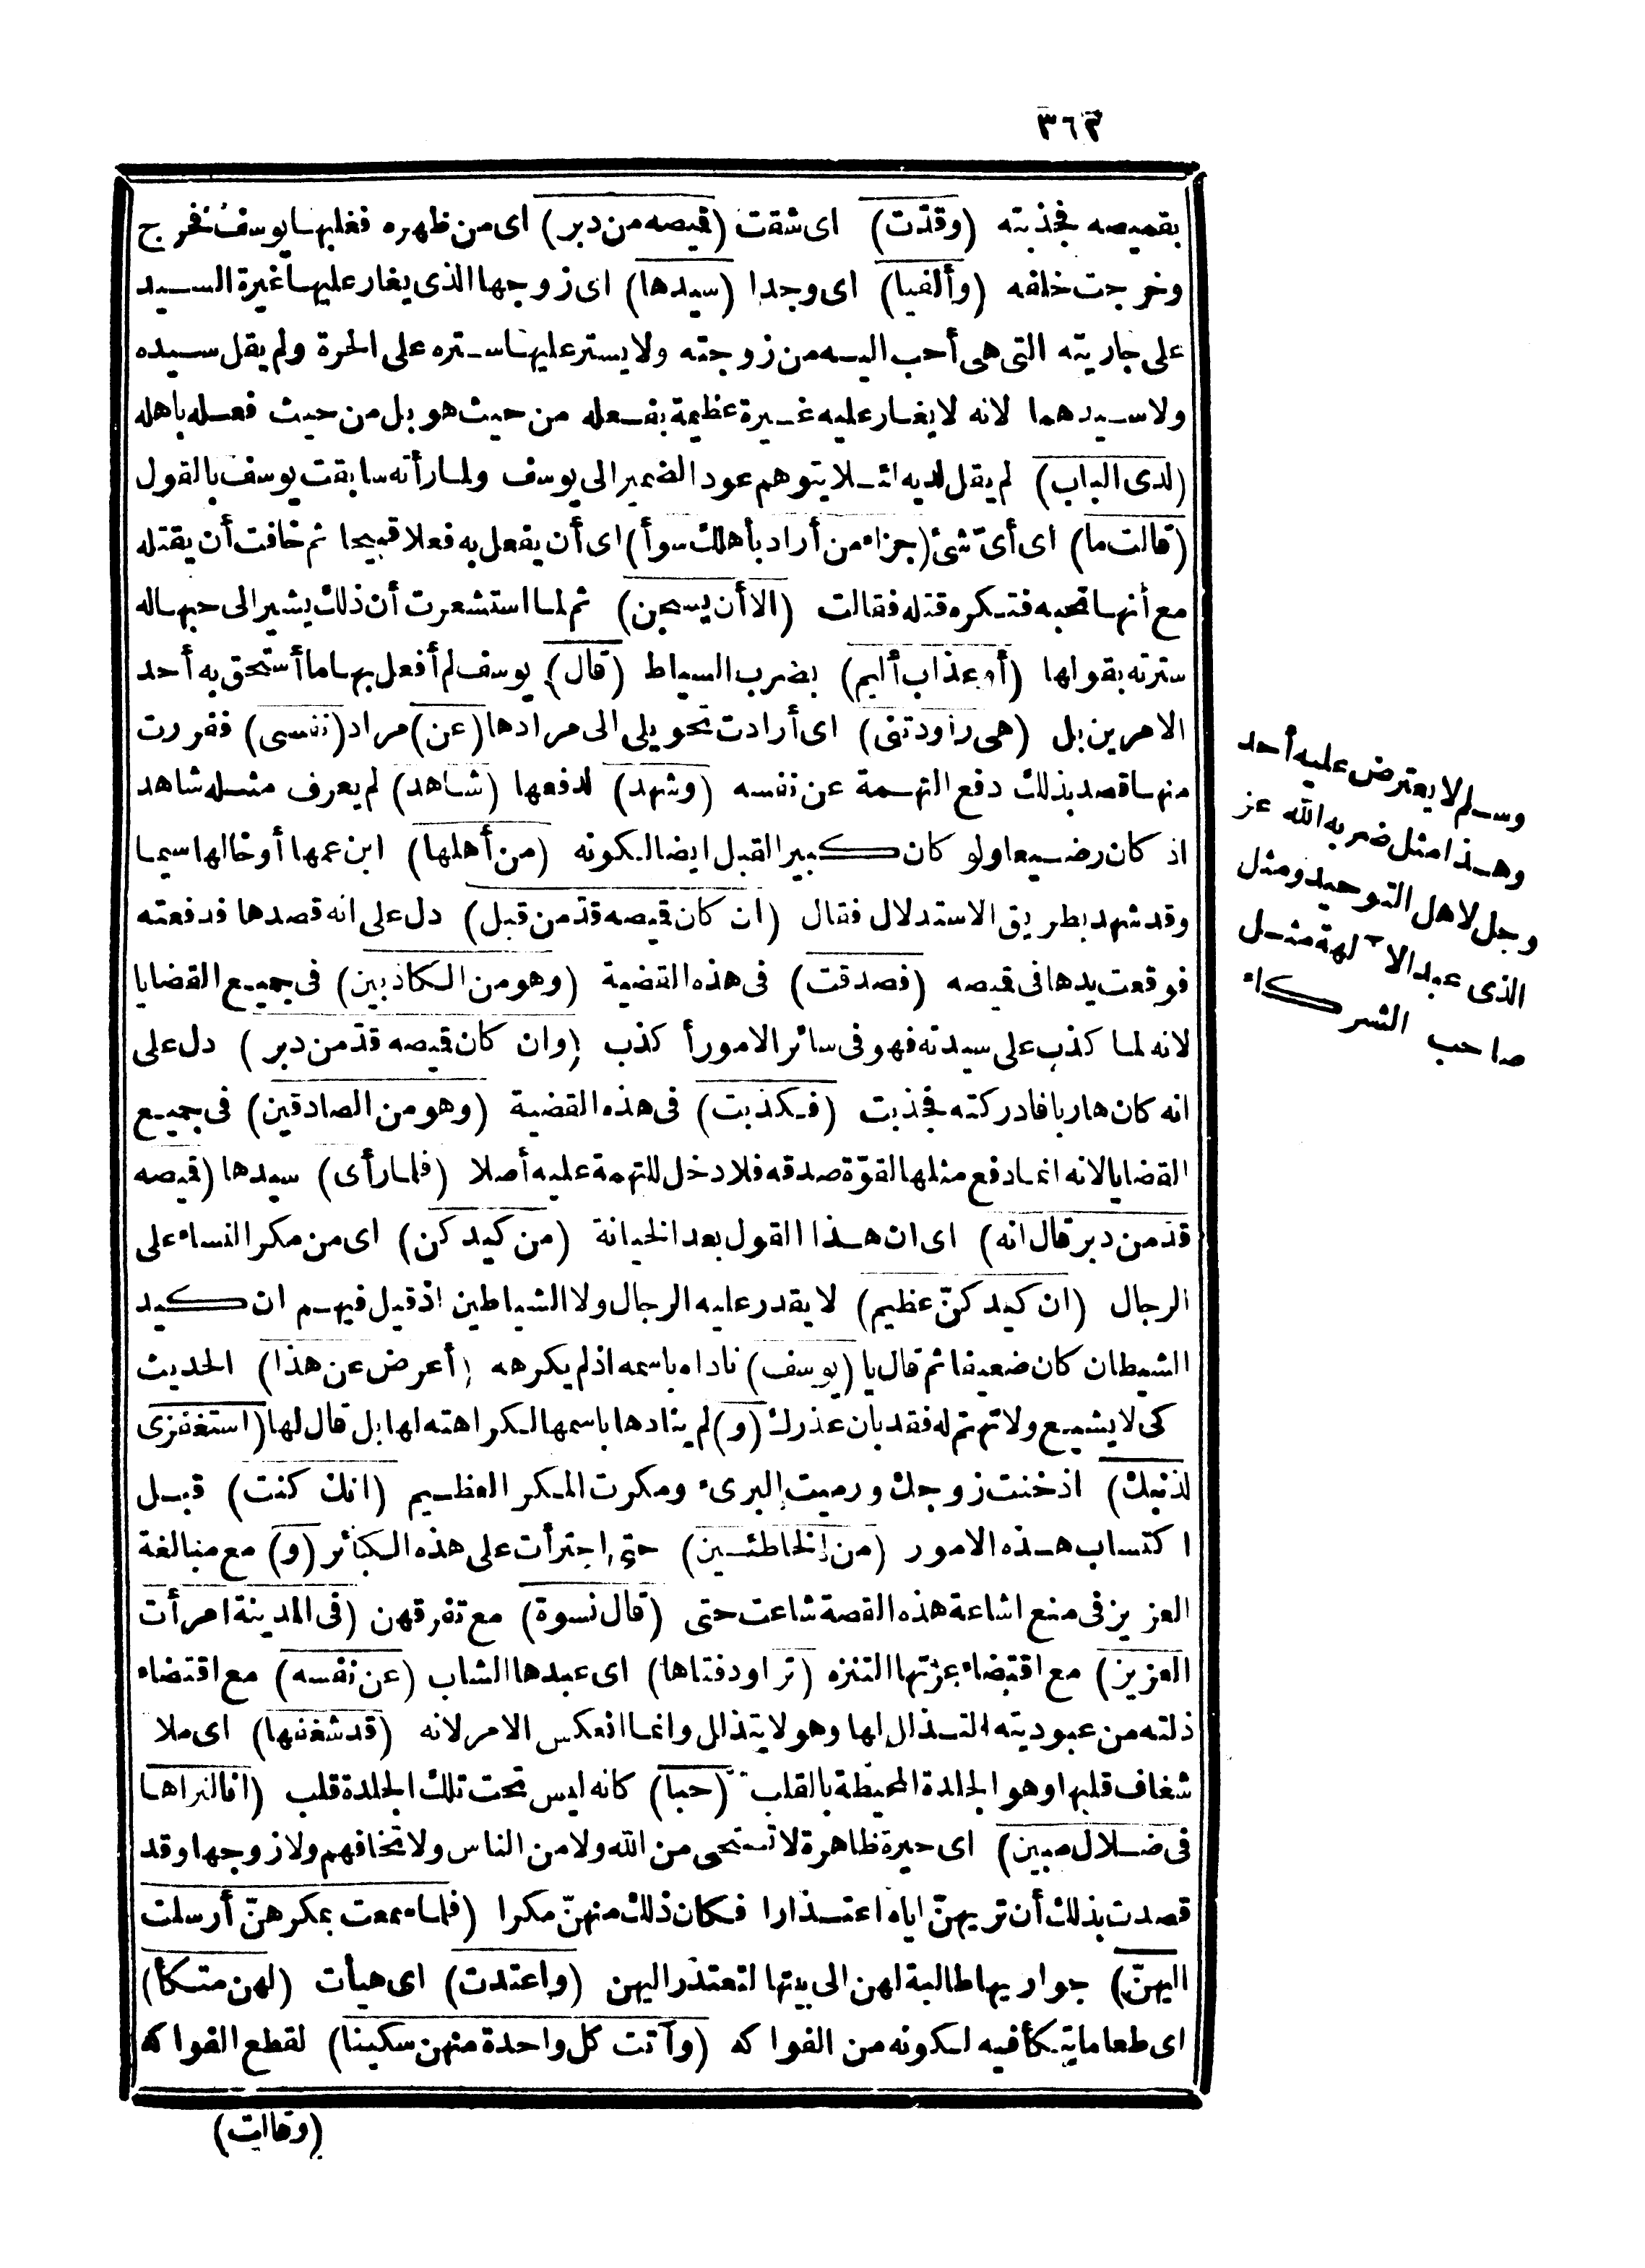 ٣٦٣
بقميصه فجذبته (وقدّت) اى شقت (قميصه من دبر) اى من ظهره فغلبها يوسف فخرج
وخرجت خلفه (وألفيا) اى وجدا (سيدها) اى زوجها الذى يغار عليها غيرة السيد
على جاريته التى هى أحب اليه من زوجته ولا يستر عليها ستره على الحرة ولم يقل سيده
ولا سيدهما لانه لا يغار عليه غيرة عظيمة بفعله من حيث هو بل من حيث فعله باهله
(لدى الباب) لم يقل لديه لئلا يتوهم عود الضمير الى يوسف ولما رأته سابقت يوسف بالقول
(قالت ما) اى أىّ شئ (جزاء من أراد بأهلك سوأ) اى أن يفعل به فعلا قبيحا ثم خافت أن يقتله
مع أنها تحبه فتكره قتله فقالت (الا أن يسجن) ثم لما استشعرت أن ذلك يشير الى حبها له
سترته بقولها (أو عذاب أليم) بضرب السياط (قال) يوسف لم أفعل بها ما أستحق به أحد
الامرين بل (هى راودتنى) اى أرادت تحويلى الى مرادها (عن) مراد (نفسى) ففررت
منها قصد بذلك دفع التهمة عن نفسه (وشهد) لدفعها (شاهد) لم يعرف مثله شاهد
اذ كان رضيعا ولو كان كبير القبل ايضا لكونه (من أهلها) ابن عمها أو خالها سيما
وقد شهد بطريق الاستدلال فقال (ان كان قميصه قدّ من قبل) دل على انه قصدها فدفعته
فوقعت يدها فى قميصه (فصدقت) فى هذه القضية (وهو من الكاذبين) فى جميع القضايا
لانه لما كذب على سيدته فهو فى سائر الامور أكذب (وان كان قميصه قدّ من دبر) دل على
انه كان هاربا فادركته فجذبت (فكذبت) فى هذه القضية (وهو من الصادقين) فى جميع
القضايا لانه انما دفع مثلها لقوّة صدقه فلا دخل للتهمة عليه أصلا (فلما رأى) سيدها (قميصه
قدّ من دبر قال انه) اى ان هذا القول بعد الخيانة (من كيدكن) اى من مكر النساء على
الرجال (ان كيدكنّ عظيم) لا يقدر عليه الرجال ولا الشياطين اذ قيل فيهم ان كيد
الشيطان كان ضعيفا ثم قال يا (يوسف) ناداه باسمه اذ لم يكرهه (أعرض عن هذا) الحديث
كى لا يشيع ولا تهتم له فقد بان عذرك (و) لم ينادها باسمها لكراهته لها بل قال لها (استغفرى
لذنبك) اذ خنت زوجك ورميت البرىء ومكرت المكر العظيم (انك كنت) قبل
اكتساب هذه الامور (من الخاطئين) حتى اجترأت على هذه الكبائر (و) مع مبالغة
العزيز فى منع اشاعة هذه القصة شاعت حتى (قال نسوة) مع تفرقهن (فى المدينة امرأت
العزيز) مع اقتضاء عزتها التنزه (تراود فتاها) اى عبدها الشاب (عن نفسه) مع اقتضاء
ذلته من عبوديته التذلل لها وهو لا يتذلل وانما انعكس الامر لانه (قد شغفها) اى ملا
شغاف قلبها وهو الجلدة المحيطة بالقلب (حبا) كانه ليس تحت تلك الجلدة قلب (انا لنراها
فى ضلال مبين) اى حيرة ظاهرة لا تستحى من الله ولا من الناس ولا تخافهم ولا زوجها وقد
قصدت بذلك أن تريهنّ اياه اعتذارا فكان ذلك منهنّ مكرا (فلما سمعت بمكرهنّ أرسلت
اليهنّ) جواريها طالبة لهن الى بيتها لتعتذر اليهن (وأعتدت) اى هيأت (لهن متكأ)
اى طعاما يتكأ فيه لكونه من الفواكه (وآتت كل واحدة منهن سكينا) لقطع الفواكه
(وقالت)
وسلم لا يعترض عليه أحد
وهذا مثل ضربه الله عز
وجل لاهل التوحيد ومثل
الذى عبد الآلهة مثل
صاحب الشركاء